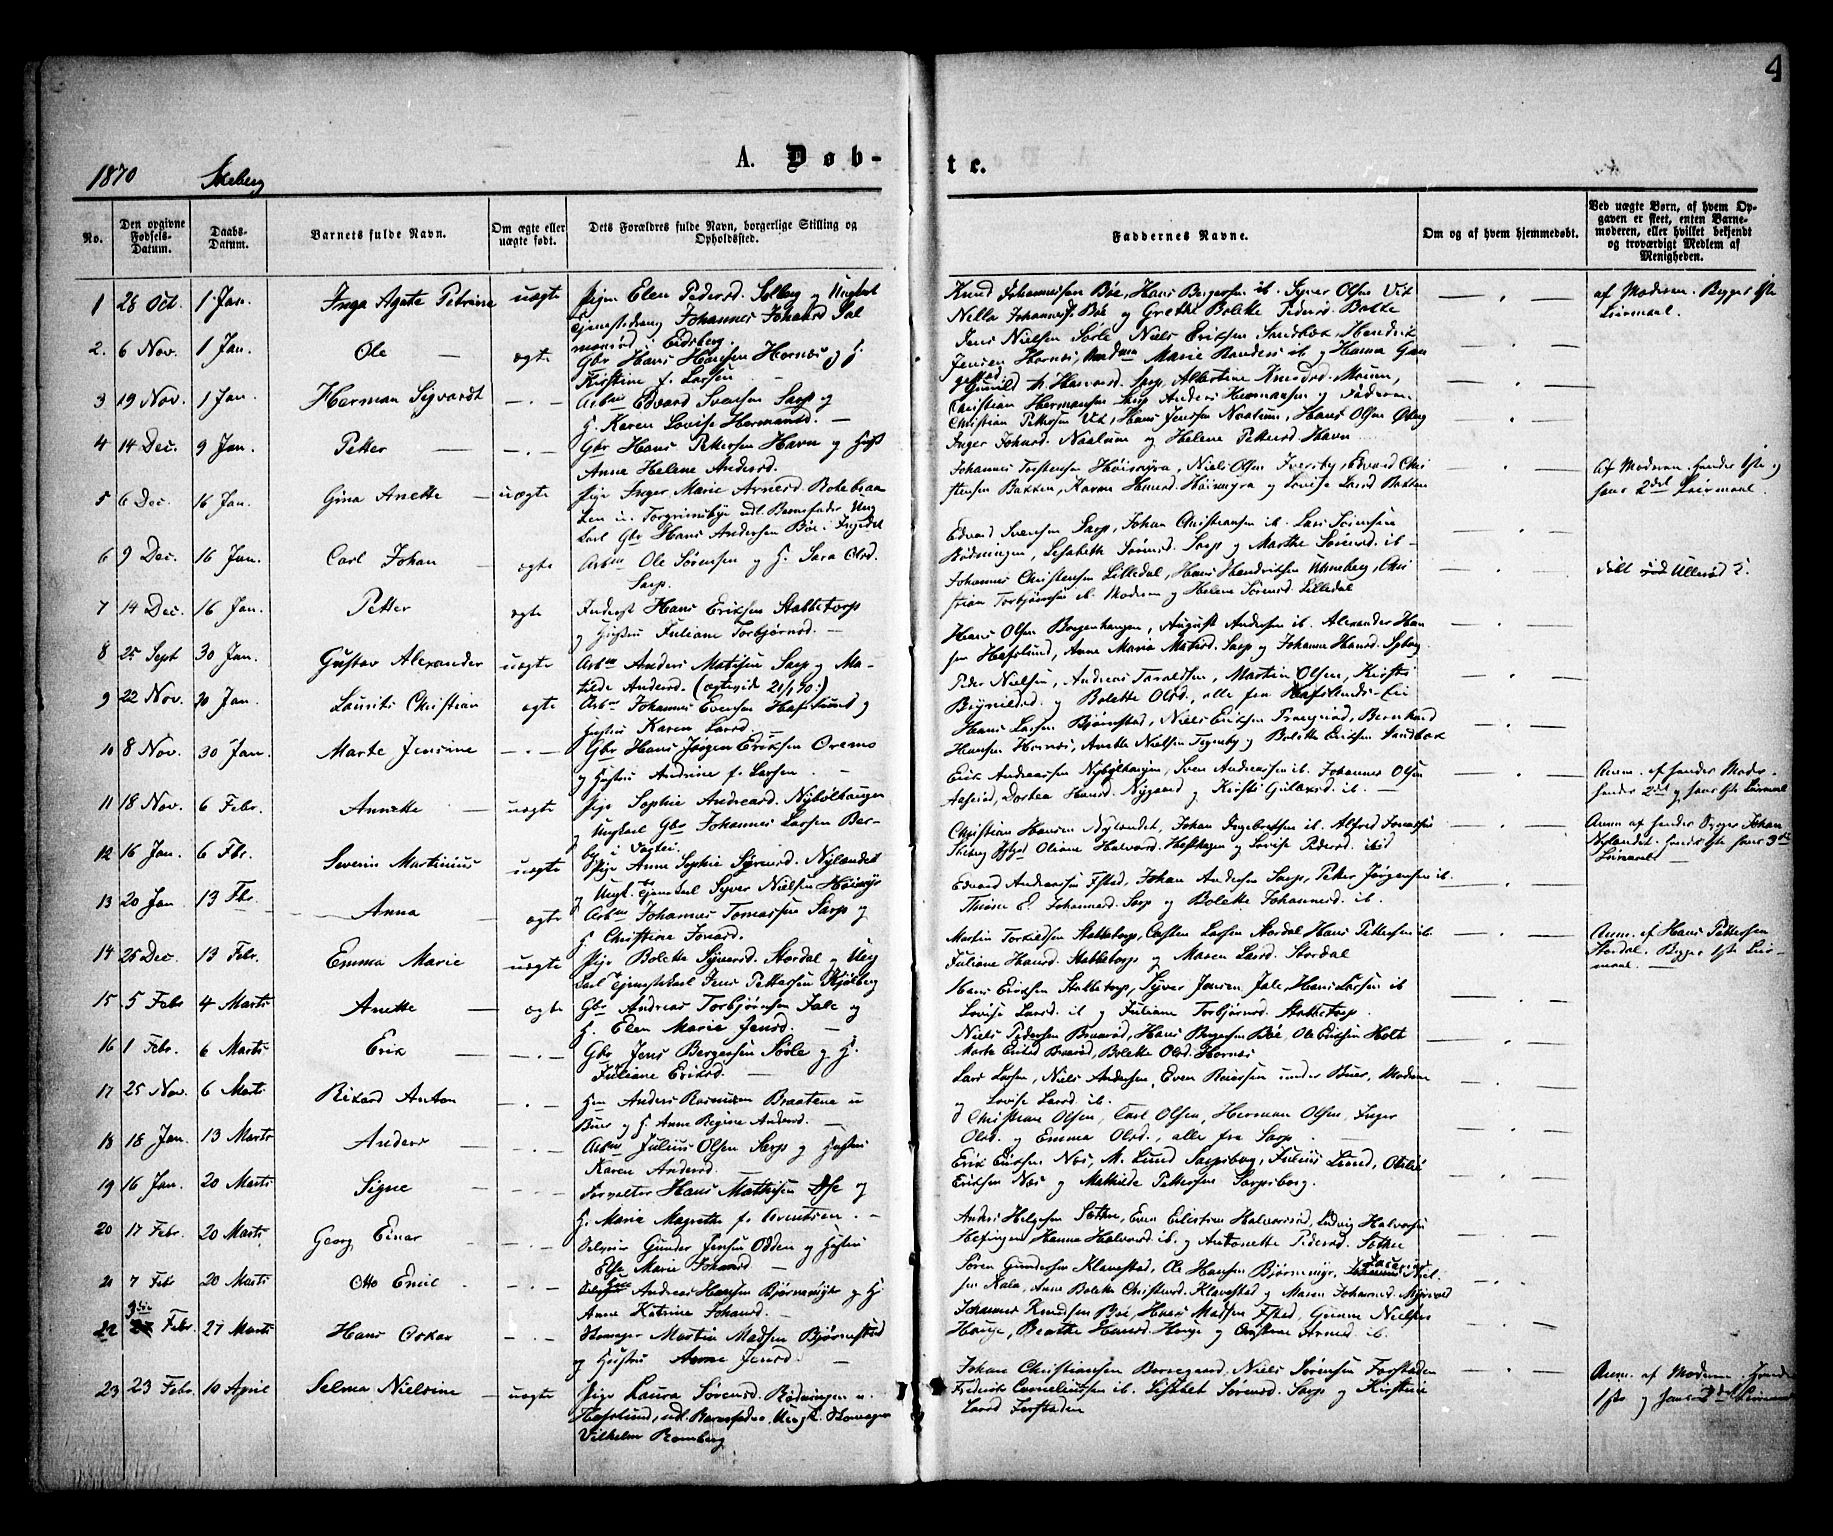 4
1870 Skeberg
A. Døb-
te.
No.
Den opgivne Fødsels-Datum.
Daabs-Datum.
Barnets fulde Navn.
Om ægte eller uægte født.
Dets Forældres fulde Navn, borgerlige Stilling og Opholdssted.
Faddernes Navne.
Om og af hvem hjemmedøbt.
Ved uægte Børn, af hvem Opgaven er skeet, enten Barnemoderen, eller hvilket bekjendt og troværdigt Medlem af Menigheden.
1 28 Oct. 1 Jan. Inga Agate Petrine uægte Pige Elen Pedersd. Solberg og Ungkarl
Tjenestedreng Johannes Johansd
i Eidsberg.
Knud Johannessen Bøe, Hans Bergersen ib. Syver Olsen
Nilla Johannesd. Bøe og Grethe Bolette Pedersd. Bakke
af Moderen. Begges 1ste
Leiermaal.
2. 6 Nov. 1 Jan. Ole — ægte Gbr Hans Hansen Hornæs og H.
Kirstine f. Larsen —
Jens Nielsen Sørle, Niels Eriksen Sandbæk, Hendrik
Jensen Hornæs, Madme Marie ib og Hanna
3 19 Nov. 1 Jan. Herman Sigvardt — . — Arbm Edvard Svensen Sarp og
H. Karen Lovise Hermansd. —
Gunild Th. Halvorsd. Sarp, Albertine Knudsd.
Christian Hermansen Sarp Anders Hermansen og Faderen
4 14 Dec. 9 Jan. Petter — — . — Gbr Hans Pettersen Havn og Hust
Anne Helene Andersd.
Christian Pettersen, Hans Jensen Naalum, Hans Olsen
Inger Johnsd. Naalum og Helene Pettersd. Havn
5 6 Dec. 16 Jan. Gina Anette — uægte Pige Inger Marie Arnesd.
Torgrimsbye udl. Barnefader Ung
karl Gbr Hans Andersen Bøe i Ingedal
Johannes Torstensen Høimyr, Niels Olsen Iversby, Edvard Chri
stensen Bakken, Karen Hansd. Høimyr og Lovise Larsd Bakken
Af Moderen. hendes 1ste og
hans 2det Leiermaal.
6 9 Dec. 16 Jan. Carl Johan — ægte Arbm Ole Sørensen og H. Sara Olsd.
Sarp.
Edvard Svensen Sarp, Johan Christiansen ib. Lars Sørensen
Rødningen, Lisabeth Sørensd. Sarp og Marthe Sørensd. ib —
døbt Ullerød K.
7 14 Dec. 16 Jan. Petter ægte Inderst Hans Eriksen Stabbetorp
og Hustru Juliane Torbjørnsd. —
Johannes Christensen Lilledal, Hans Hendriksen Unneberg, Chri
stian Torbjørnsen ib. Moderen og Helene Sørensd. Lilledal
8 25 Sept 30 Jan. Gustav Alexander uægte Arbm Anders Mathisen Sarp og Ma-
tilde Andersd. (ægteviede 21/1 70.)
Hans Olsen Borgenhaugen, August Andersen ib. Alexander Han
sen Hafslund, Anne Marie Mathisd. Sarp og Johanne Hansd.
9 22 Nov. 30 Jan. Laurits Christian ægte Arbm Johannes Evensen Hafslund og
Hustru Karen Larsd. —
Peder Nielsen, Andreas Taraldsen, Martin Olsen, Kirsti
Brynildsd. og Bolette Olsd., alle fra Hafslunds-Eie
10 8 Nov. 30 Jan. Marte Jensine — . — Gbr Hans Jørgen Eriksen Oremo
og Hustru Andrine f. Larsen. —
Hans Larsen Bjørnstad, Niels Eriksen, Bernhard
Hansen Hornæs, Anette Nielsen Tegneby og Bolette Eriksen Sandbæk
11 18 Nov. 6 Febr. Annette — uægte Pige Sophie Andreasd. Nybølhaugen
og Ungkarl Gbr Johannes Larsen Ber-
by i
Erik Andreassen Nybølhaugen, Sven Andreassen ib. Johannes Olsen
Aaserud, Dorthea Hansd. Nygaard og Kirsti Gulaksd. ib. —
Anm. af hendes Moder.
hendes 2det og hans 1ste Leiermaal
12 16 Jan. 6 Fbr. Severin Martinius uægte Pige Anne Sophie Syversd. Nylændet
og Ungk. Tjenestekarl Syver Nielsen Høimyr
Christian Hansen Nylændet, Johan Ingebretsen ib. Alfred Jonassen
Skeberg Oliane Halvorsd. og Lovise Pedersd. ibid
Anm af hendes Svoger Johan
Nylændet. hendes 1ste hans 3die
Leiermaal —
13 20 Jan 13 Fbr. Anna — ægte Arbm Johannes Tomassen Sarp og
H. Christine Jonasd.
Edvard Andreassen Ystad, Johan Andersen Sarp, Peter Jørgensen ib.
Johannesd. Sarp og Bolette Johannesd. ib.
14 25 Dec. 13 Febr. Emma Marie uægte Pige Bolette Syversd. Stordal og Ung
karl Tjenestekarl Jens Pettersen Kjølberg
Martin Torkildsen Stabbetorp, Carsten Larsen Stordal Hans Pettersen ib.
Juliane Hansd. Stabbetorp og Maren Larsd. Stordal
Anm. af Hans Pettersen
Stordal. Begges 1ste Leier-
maal. —
15 5 Febr 4 Marts Anette — ægte Gbr Andreas Torbjørnsen Jale og
H. Elen Marie Jensd. —
Hans Eriksen Stabbetorp, Syver Jensen Jale, Hans Larsen ib
Lovise Larsd. ib og Juliane Torbjørnsd. Stabbetorp.
16 1 Febr. 6 Marts Erik — — . — Gbr Jens Bergersen Sørle og H.
Juliane Eriksd. —
Niels Pedersen, Hans Bergersen Bøe Ole Eriksen Holt
Marte Eriksd, Bolette Olsd. Hornæs
17 25 Nov. 6 Marts Rikard Anton — . — Hmd Anders Rasmussen Braatene u
Buer og H. Anne Regine Andersd. —
Lars Larsen, Niels Andersen, Even Reiersen under Buer, Moderen
og Lovise Larsd. ib.
18 18 Jan. 13 Marts Anders — — . — Arbm Julius Olsen Sarp og Hustru
Karen Andersd. —
Christian Olsen, Carl Olsen, Herman Olsen, Inger
Olsd. og Emma Olsd., alle fra Sarp. —
19 16 Jan. 20 Marts Signe — — . — Forvalter Hans Mathisen Øse og
H. Marie Magrethe f. Arentsen. —
Erik Eriksen Næs, M. Lund Sarpsborg, Julius Lund, Otilie
Eriksen Næs og Mathilde Pettersen Sarpsborg.
20 17 Febr. 20 Marts Georg Einar — . — Selveier Gunder Jensen Odden og Hustru
Else Marie Johansd —
Anders Helgesen Sothe, Even Eilertsen Halvorsrød, Ludvig Halvorsen
Hefingen Hanna Halvorsd. ib. og Antonette Pedersd. Sothe
21 7 Febr 20 Marts Otto Emil — . — Andreas Hansen Bjørnemyr og H.
Anne Katrine Johansd. —
Søren Gundersen Klavestad, Ole Hansen Bjørnemyr,
sen Kala, Anne Bolette Christensd. Klavestad og Maren Johannesd.
22 9de Febr. 27 Marts Hans Oskar — . — Skomager Martin Madsen Bjørnestad
og Hustru Anne Jensd. —
Johannes Knudsen Bøe, Hans Madsen Ystad, Nielsen
Hauge, Berthe Hansd. Hauge og Arnesd. ib.
23 23 Febr. 10 April Selma Nielsine — uægte Pige Laura Sørensd. Rødningen u.
Hafslund, udl. Barnefader, Ungk. Skomager
Vilhelm Romberg
Johan Christiansen Borregaard. Niels Sørensen Forstaden
Fredrik Cornelinssen ib. Lisabet Sørensd. Sarp og Kirstine
Larsd Forstaden
Anm. af Moderen. hendes
1ste og hans 2det Leiermaal